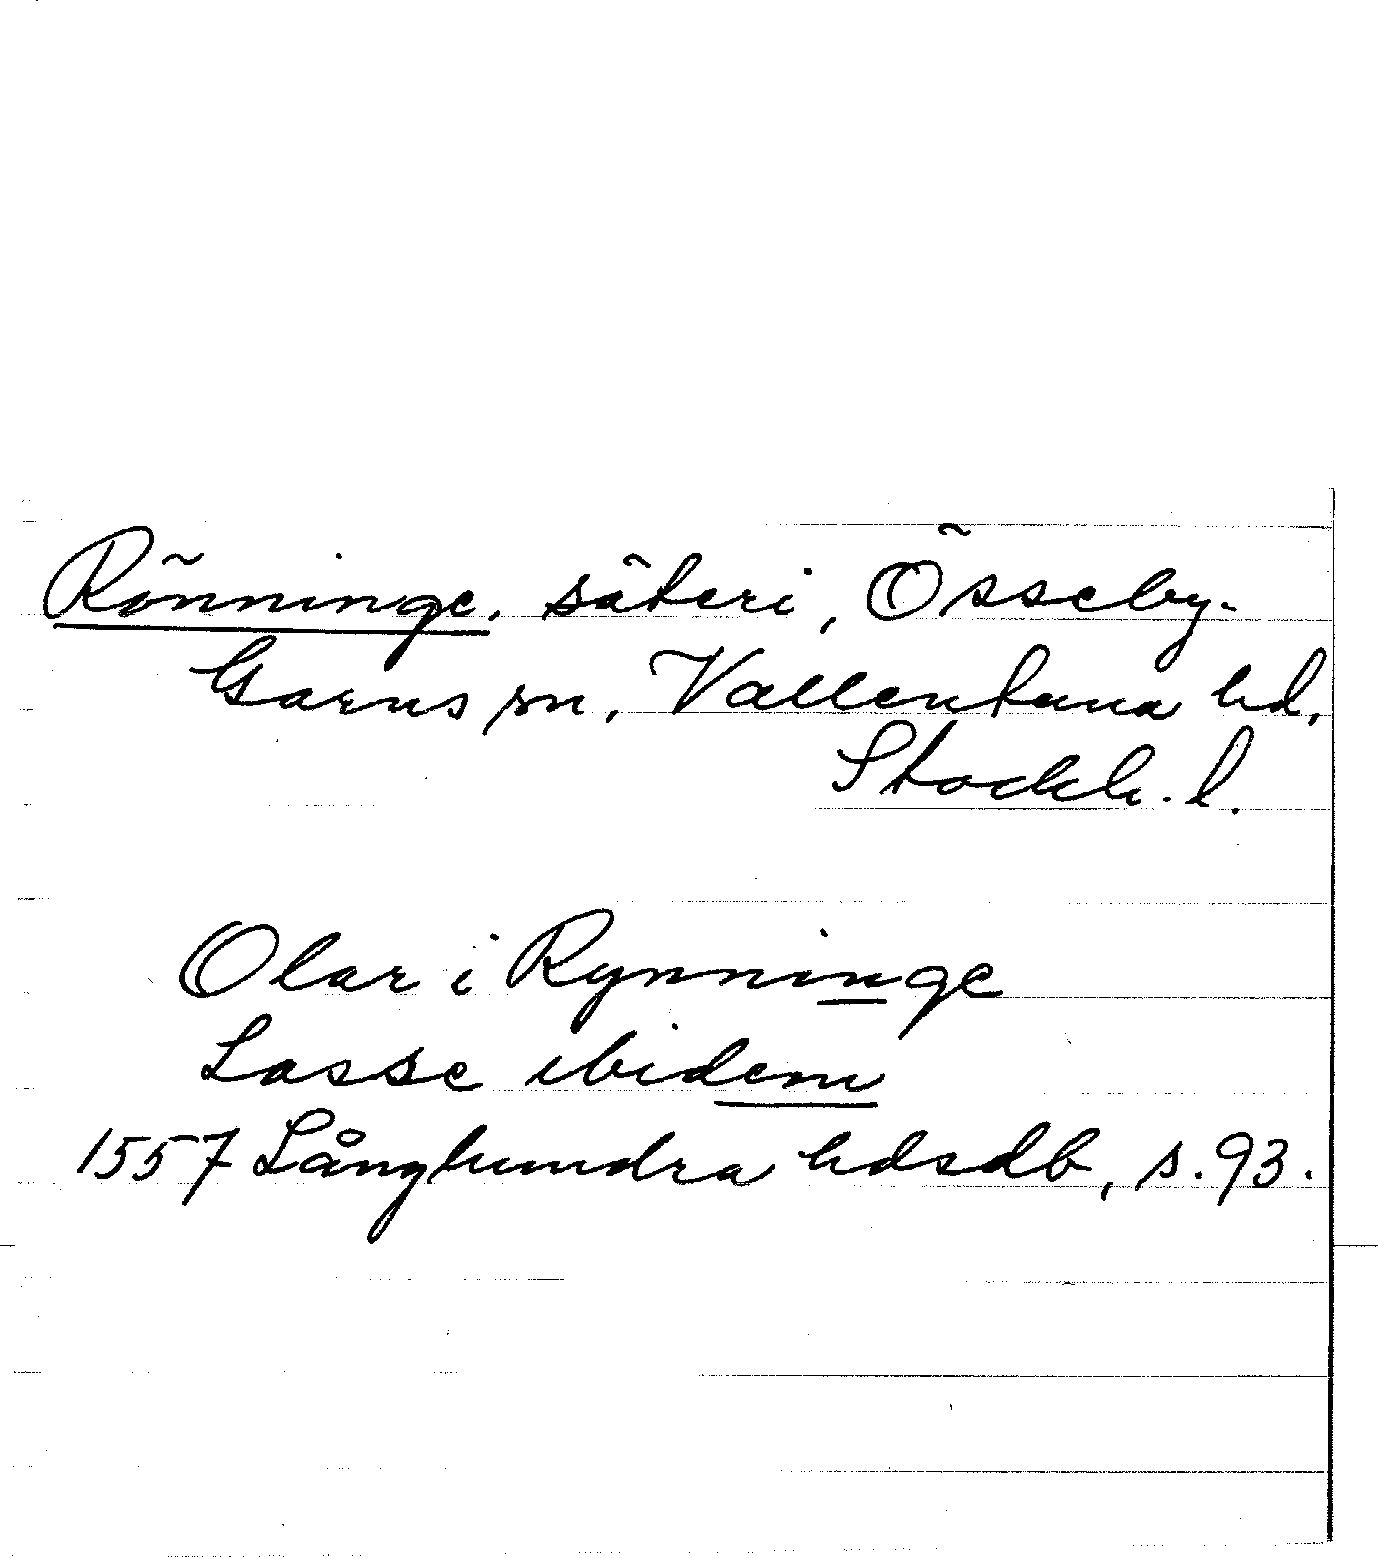 Rönninge, säteri, Össeby-
Garns sn, Vallentuna hd,
Stockh. l.
Olar i Rynninge
Lasse ibidem
1557 Långhundra hdsdb, s. 93.